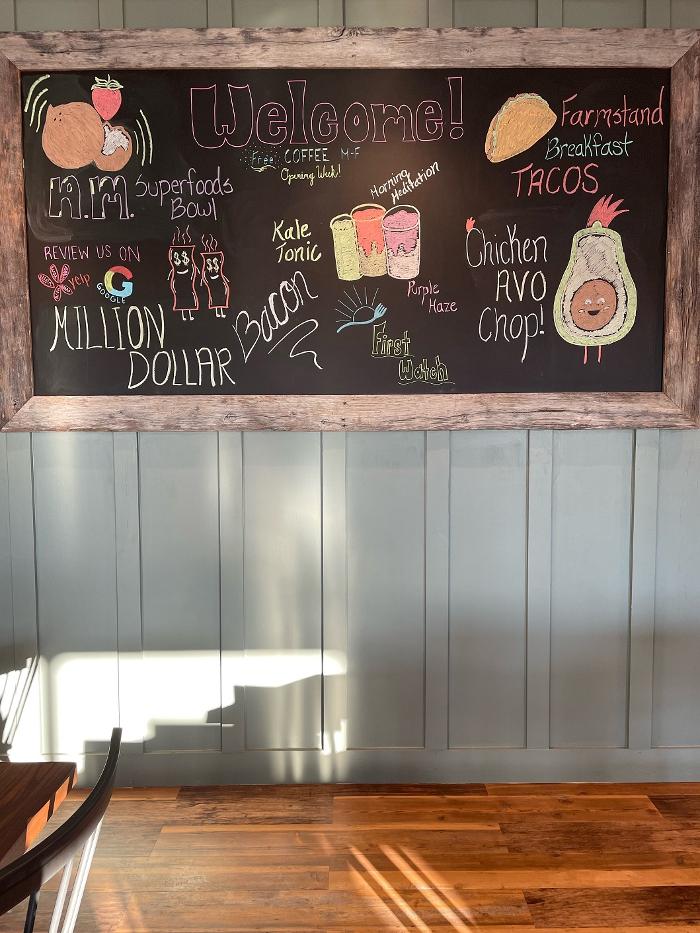 Welcome!
Free COFFEE M-F
Opening Week!
A.M. Superfoods
Bowl
REVIEW US ON
yelp
G
GOOGLE
$$ $$
MILLION
DOLLAR
Bacon
Kale
Tonic
Morning
Meditation
Purple
Haze
First
Watch
Farmstand
Breakfast
TACOS
Chicken
AVO
Chop!